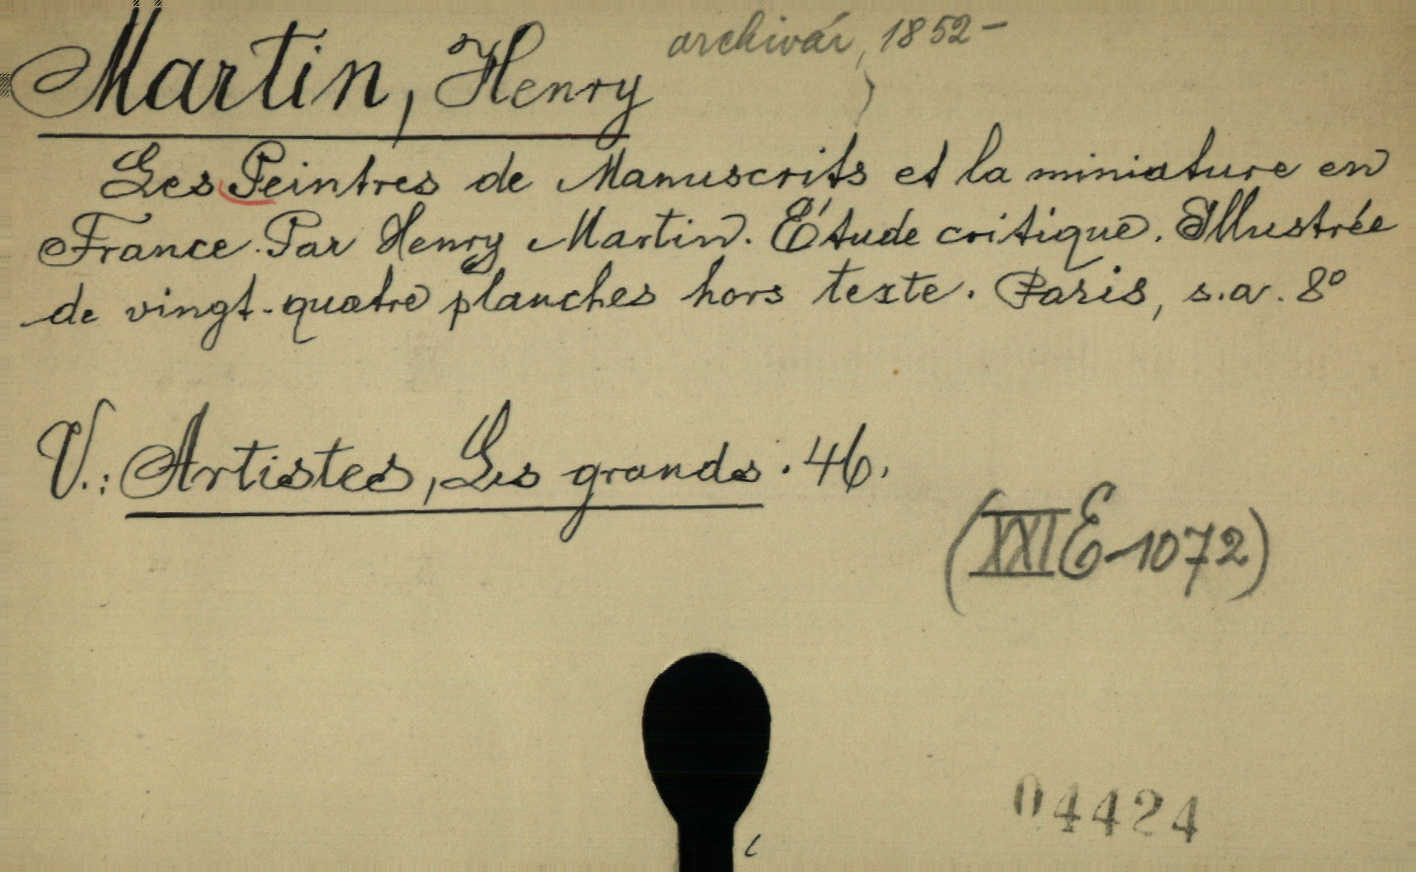 Martin, Henry archivár, 1852-
Les Peintres de Manuscrits et la miniature en
France. Par Henry Martin. Étude critique. Illustrée
de vingt-quatre planches hors texte. Paris, s.a. 8º
V.: Artistes, Les grands. 46.
(XXI E-1072)
04424